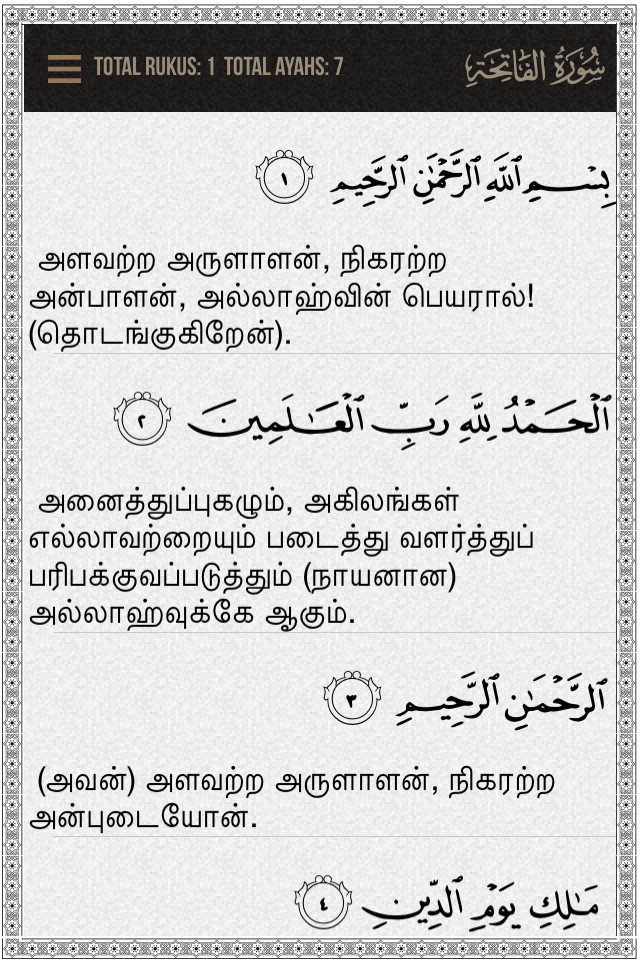 TOTAL RUKUS: 1 TOTAL AYAHS: 7 سُورَةُ الفَاتِحَةِ
بِسْمِ ٱللَّهِ ٱلرَّحْمَٰنِ ٱلرَّحِيمِ ١
அளவற்ற அருளாளன், நிகரற்ற
அன்பாளன், அல்லாஹ்வின் பெயரால்!
(தொடங்குகிறேன்).
ٱلْحَمْدُ لِلَّهِ رَبِّ ٱلْعَٰلَمِينَ ٢
அனைத்துப்புகழும், அகிலங்கள்
எல்லாவற்றையும் படைத்து வளர்த்துப்
பரிபக்குவப்படுத்தும் (நாயனான)
அல்லாஹ்வுக்கே ஆகும்.
ٱلرَّحْمَٰنِ ٱلرَّحِيمِ ٣
(அவன்) அளவற்ற அருளாளன், நிகரற்ற
அன்புடையோன்.
مَٰلِكِ يَوْمِ ٱلدِّينِ ٤